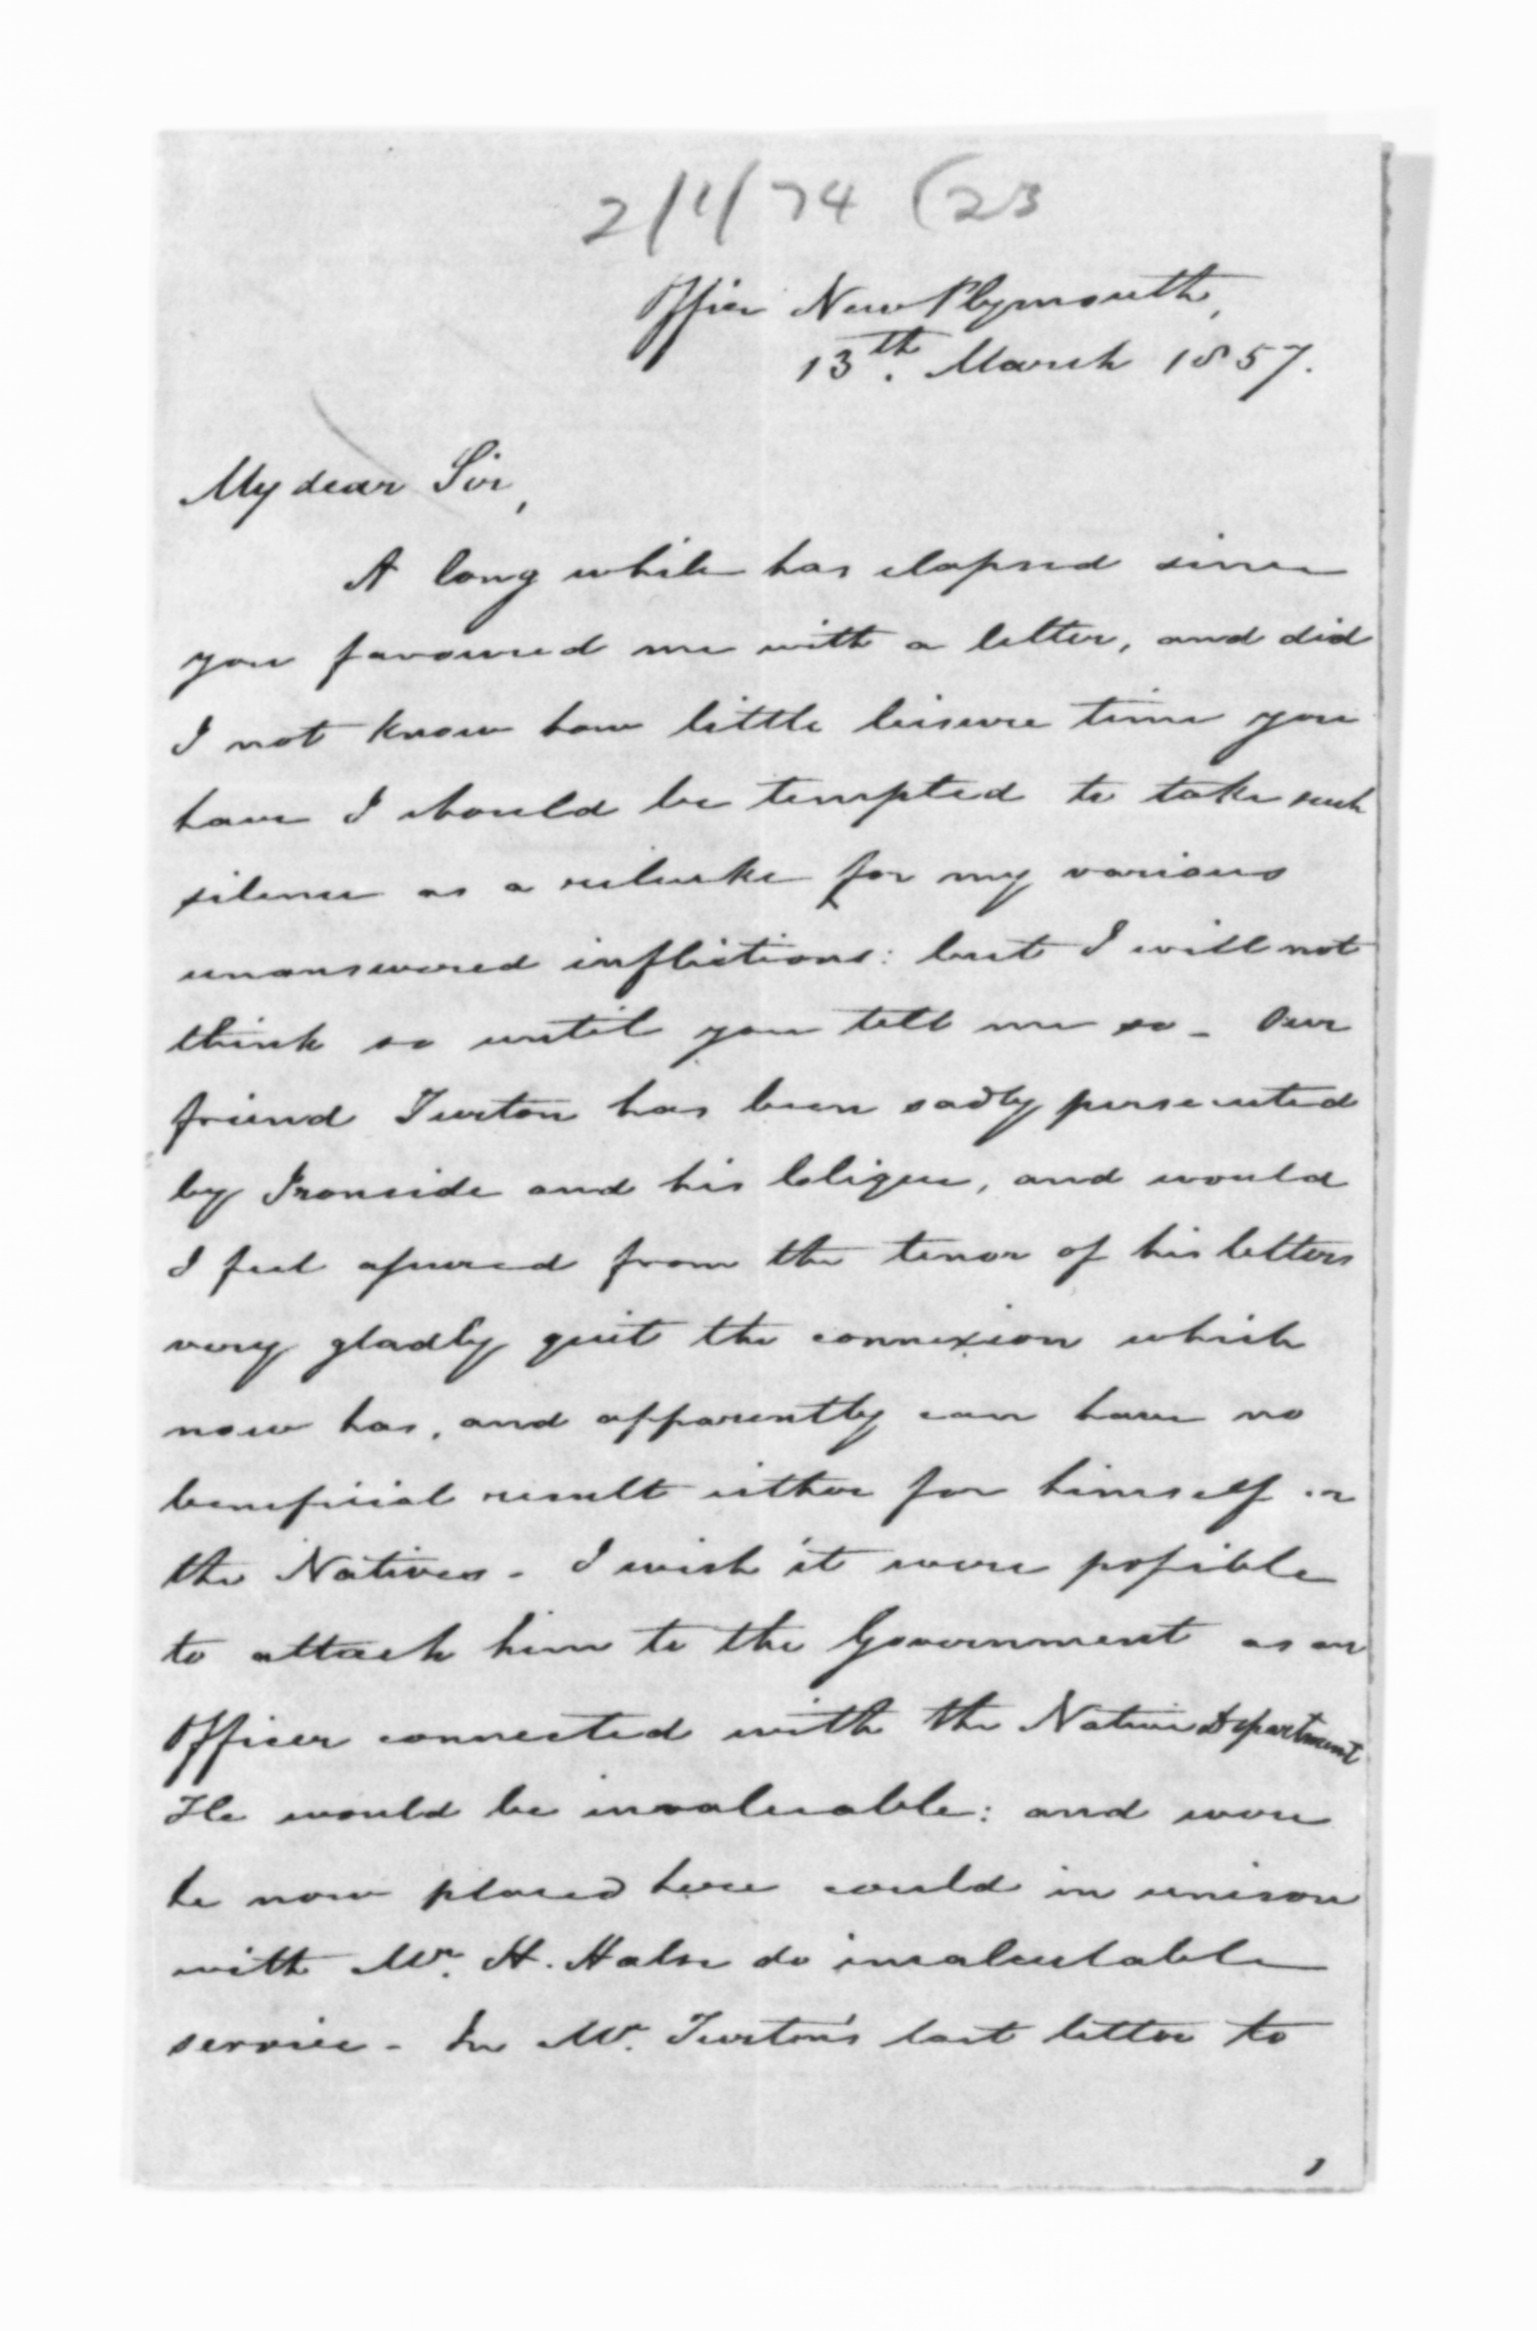 2/1/74 (23
Office New Plymouth,
13th. March 1857.
My dear Sir,
A long while has elapsed since
you favoured me with a letter, and did
I not know how little leisure time you
have I should be tempted to take such
silence as a rebuke for my various
unanswered inflictions: but I will not
think so until you tell me so - Our
friend Turton has been sadly persecuted
by Ironside and his Clique, and would
I feel assured from the tenor of his letters
very gladly quit the connexion which
now has, and apparently can have no
beneficial result either for himself or
the Natives - I wish it were possible
to attach him to the Government as an
Officer connected with the Native Department
He would be invaluable: and were
he now placed here could in unison
with Mr. H. Halse do incalculable
service - In Mr. Turton's last letter to